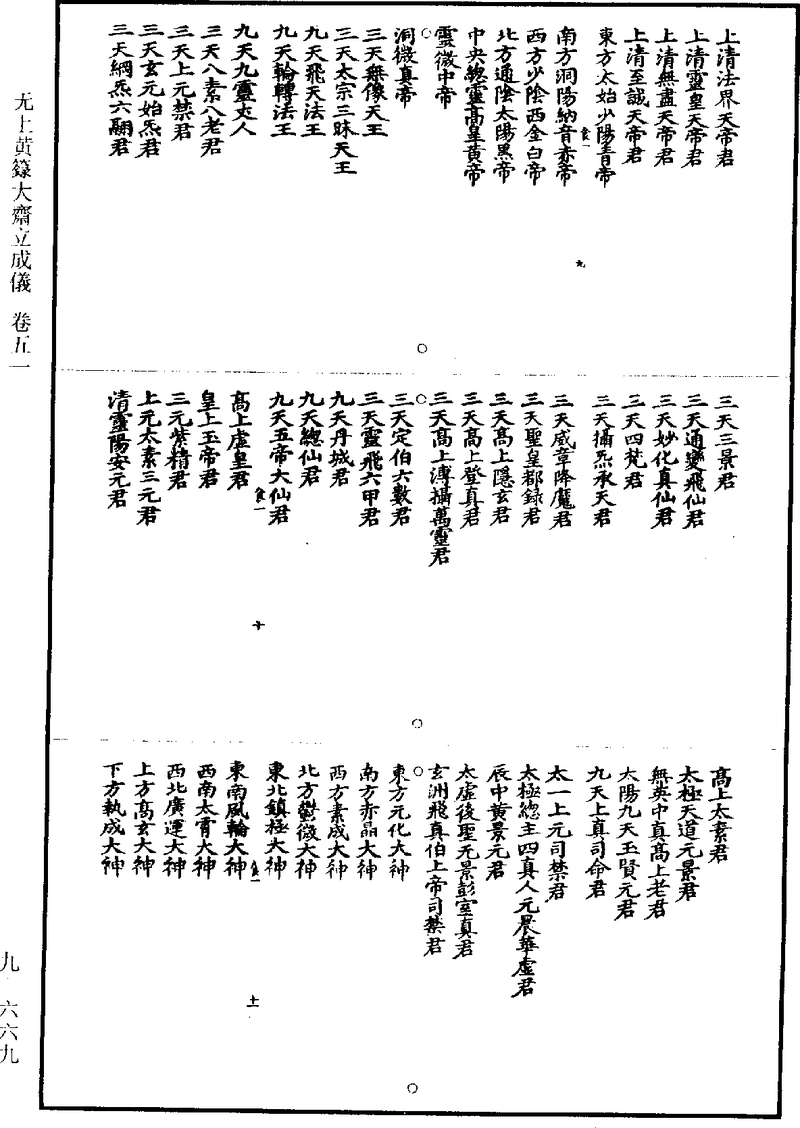 上清法界天帝君
上清靈皇天帝君
上清無盡天帝君
上清至誠天帝君
東方太始少陽青帝
南方洞陽納音赤帝
食一
九
西方少陰西金白帝
北方通陰太陽黑帝
中央總靈高皇黃帝
靈微中帝
洞微真帝
三天無像天王
三天太宗三昧天王
九天飛天法王
九天輪轉法王
九天九靈丈人
三天八素八老君
三天上元禁君
三天玄元始炁君
三天綱炁六翮君
三天三景君
三天通變飛仙君
三天妙化真仙君
三天四梵君
三天攝炁承天君
三天威章降魔君
三天聖皇都錄君
三天高上隱玄君
三天高上登真君
三天高上溥攝萬靈君
三天定伯六數君
三天靈飛六甲君
九天丹城君
九天總仙君
九天五帝大仙君
食一
十
高上虛皇君
皇上玉帝君
三元紫精君
上元太素三元君
清靈陽安元君
高上太素君
太極天道元景君
無英中真高上老君
太陽九天玉賢元君
九天上真司命君
太一上元司禁君
太極總主四真人元晨華虛君
辰中黃景元君
太虛後聖元景彭室真君
玄洲飛真伯上帝司禁君
東方元化大神
南方赤晶大神
西方素成大神
北方鬱微大神
東北鎮極大神
食一
十一
東南風輪大神
西南太霄大神
西北廣運大神
上方高玄大神
下方執成大神
无上黃籙大齋立成儀 卷五一
九 六六九